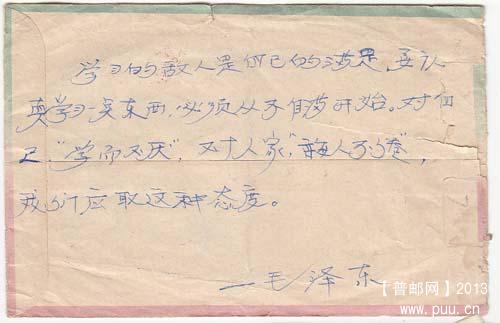 学习的敌人是自己的满足,要认
真学习一点东西,必须从不自满开始。对自
己,"学而不厌",对人家,"诲人不倦",
我们应取这种态度。
—毛泽东
【普邮网】2013
www.puu.cn